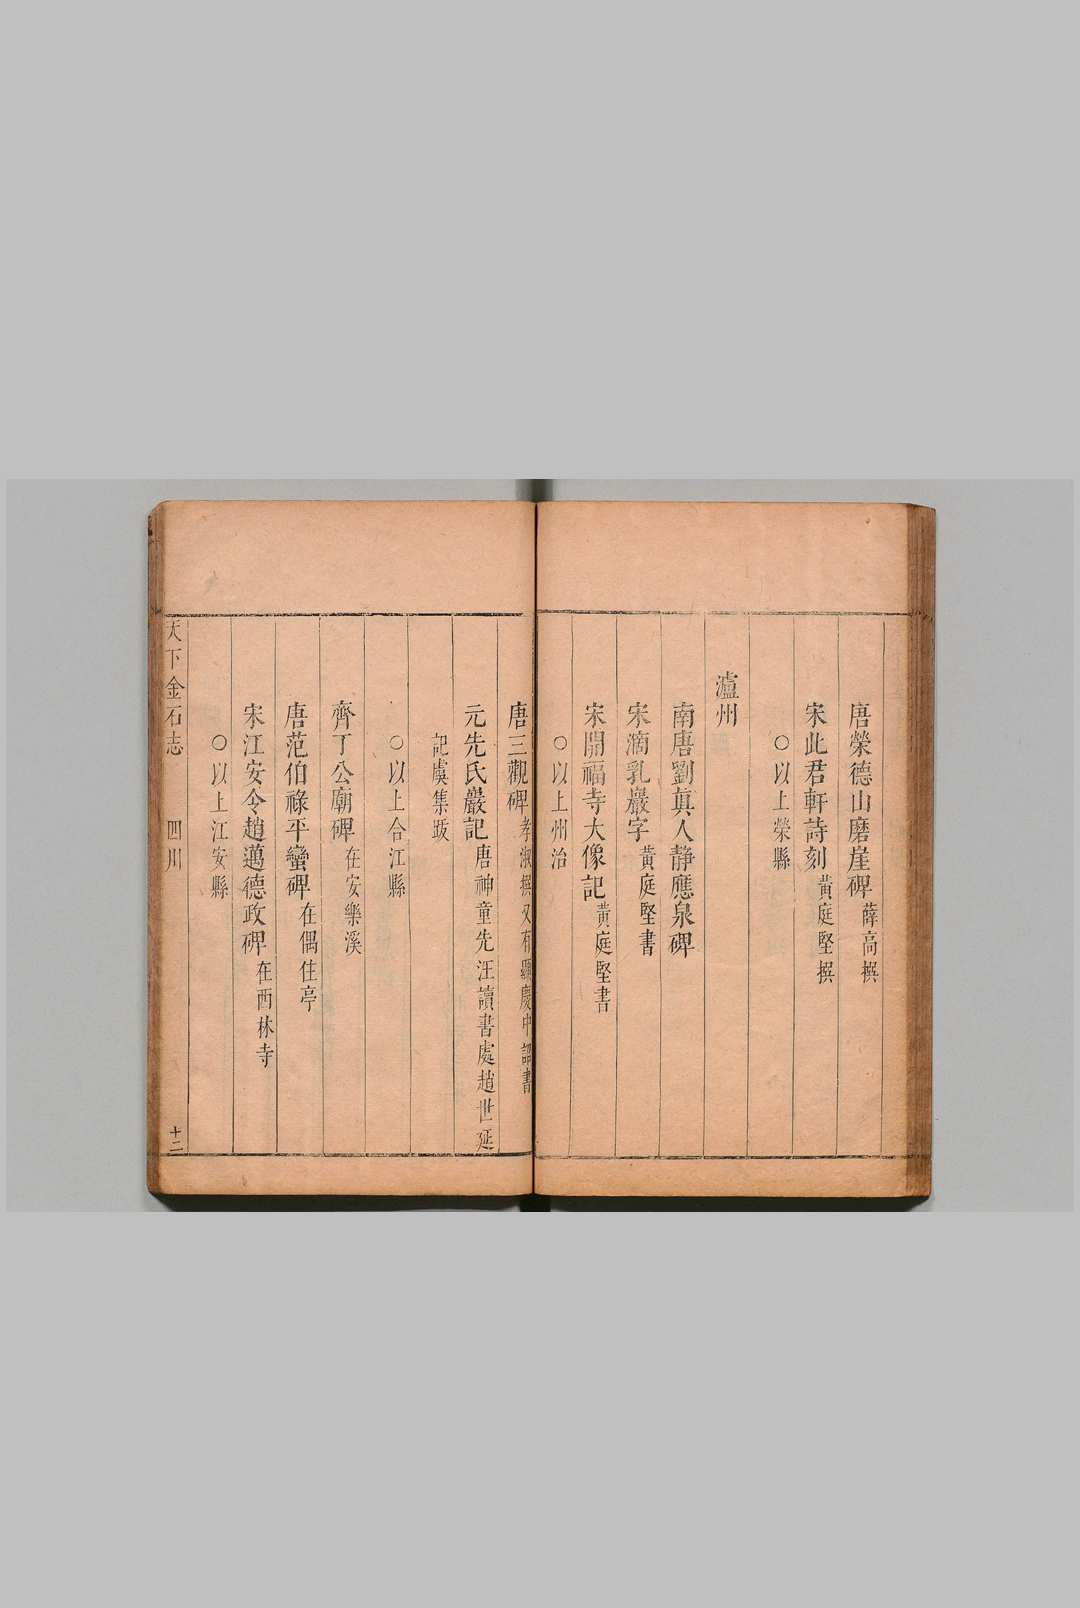 唐榮德山磨崖碑薛高撰
宋此君軒詩刻黃庭堅撰
○以上榮縣
瀘州
南唐劉真人靜應泉碑
宋滴乳巖字黃庭堅書
宋開福寺大像記黃庭堅書
○以上州治
唐三觀碑李淑撰又有顯慶中詔書
元先氏巖記唐神童先汪讀書處趙世延
記虞集跋
○以上合江縣
齊丁公廟碑在安樂溪
唐范伯祿平蠻碑在偶住亭
宋江安令趙邁德政碑在西林寺
○以上江安縣
天下金石志 四川 十二